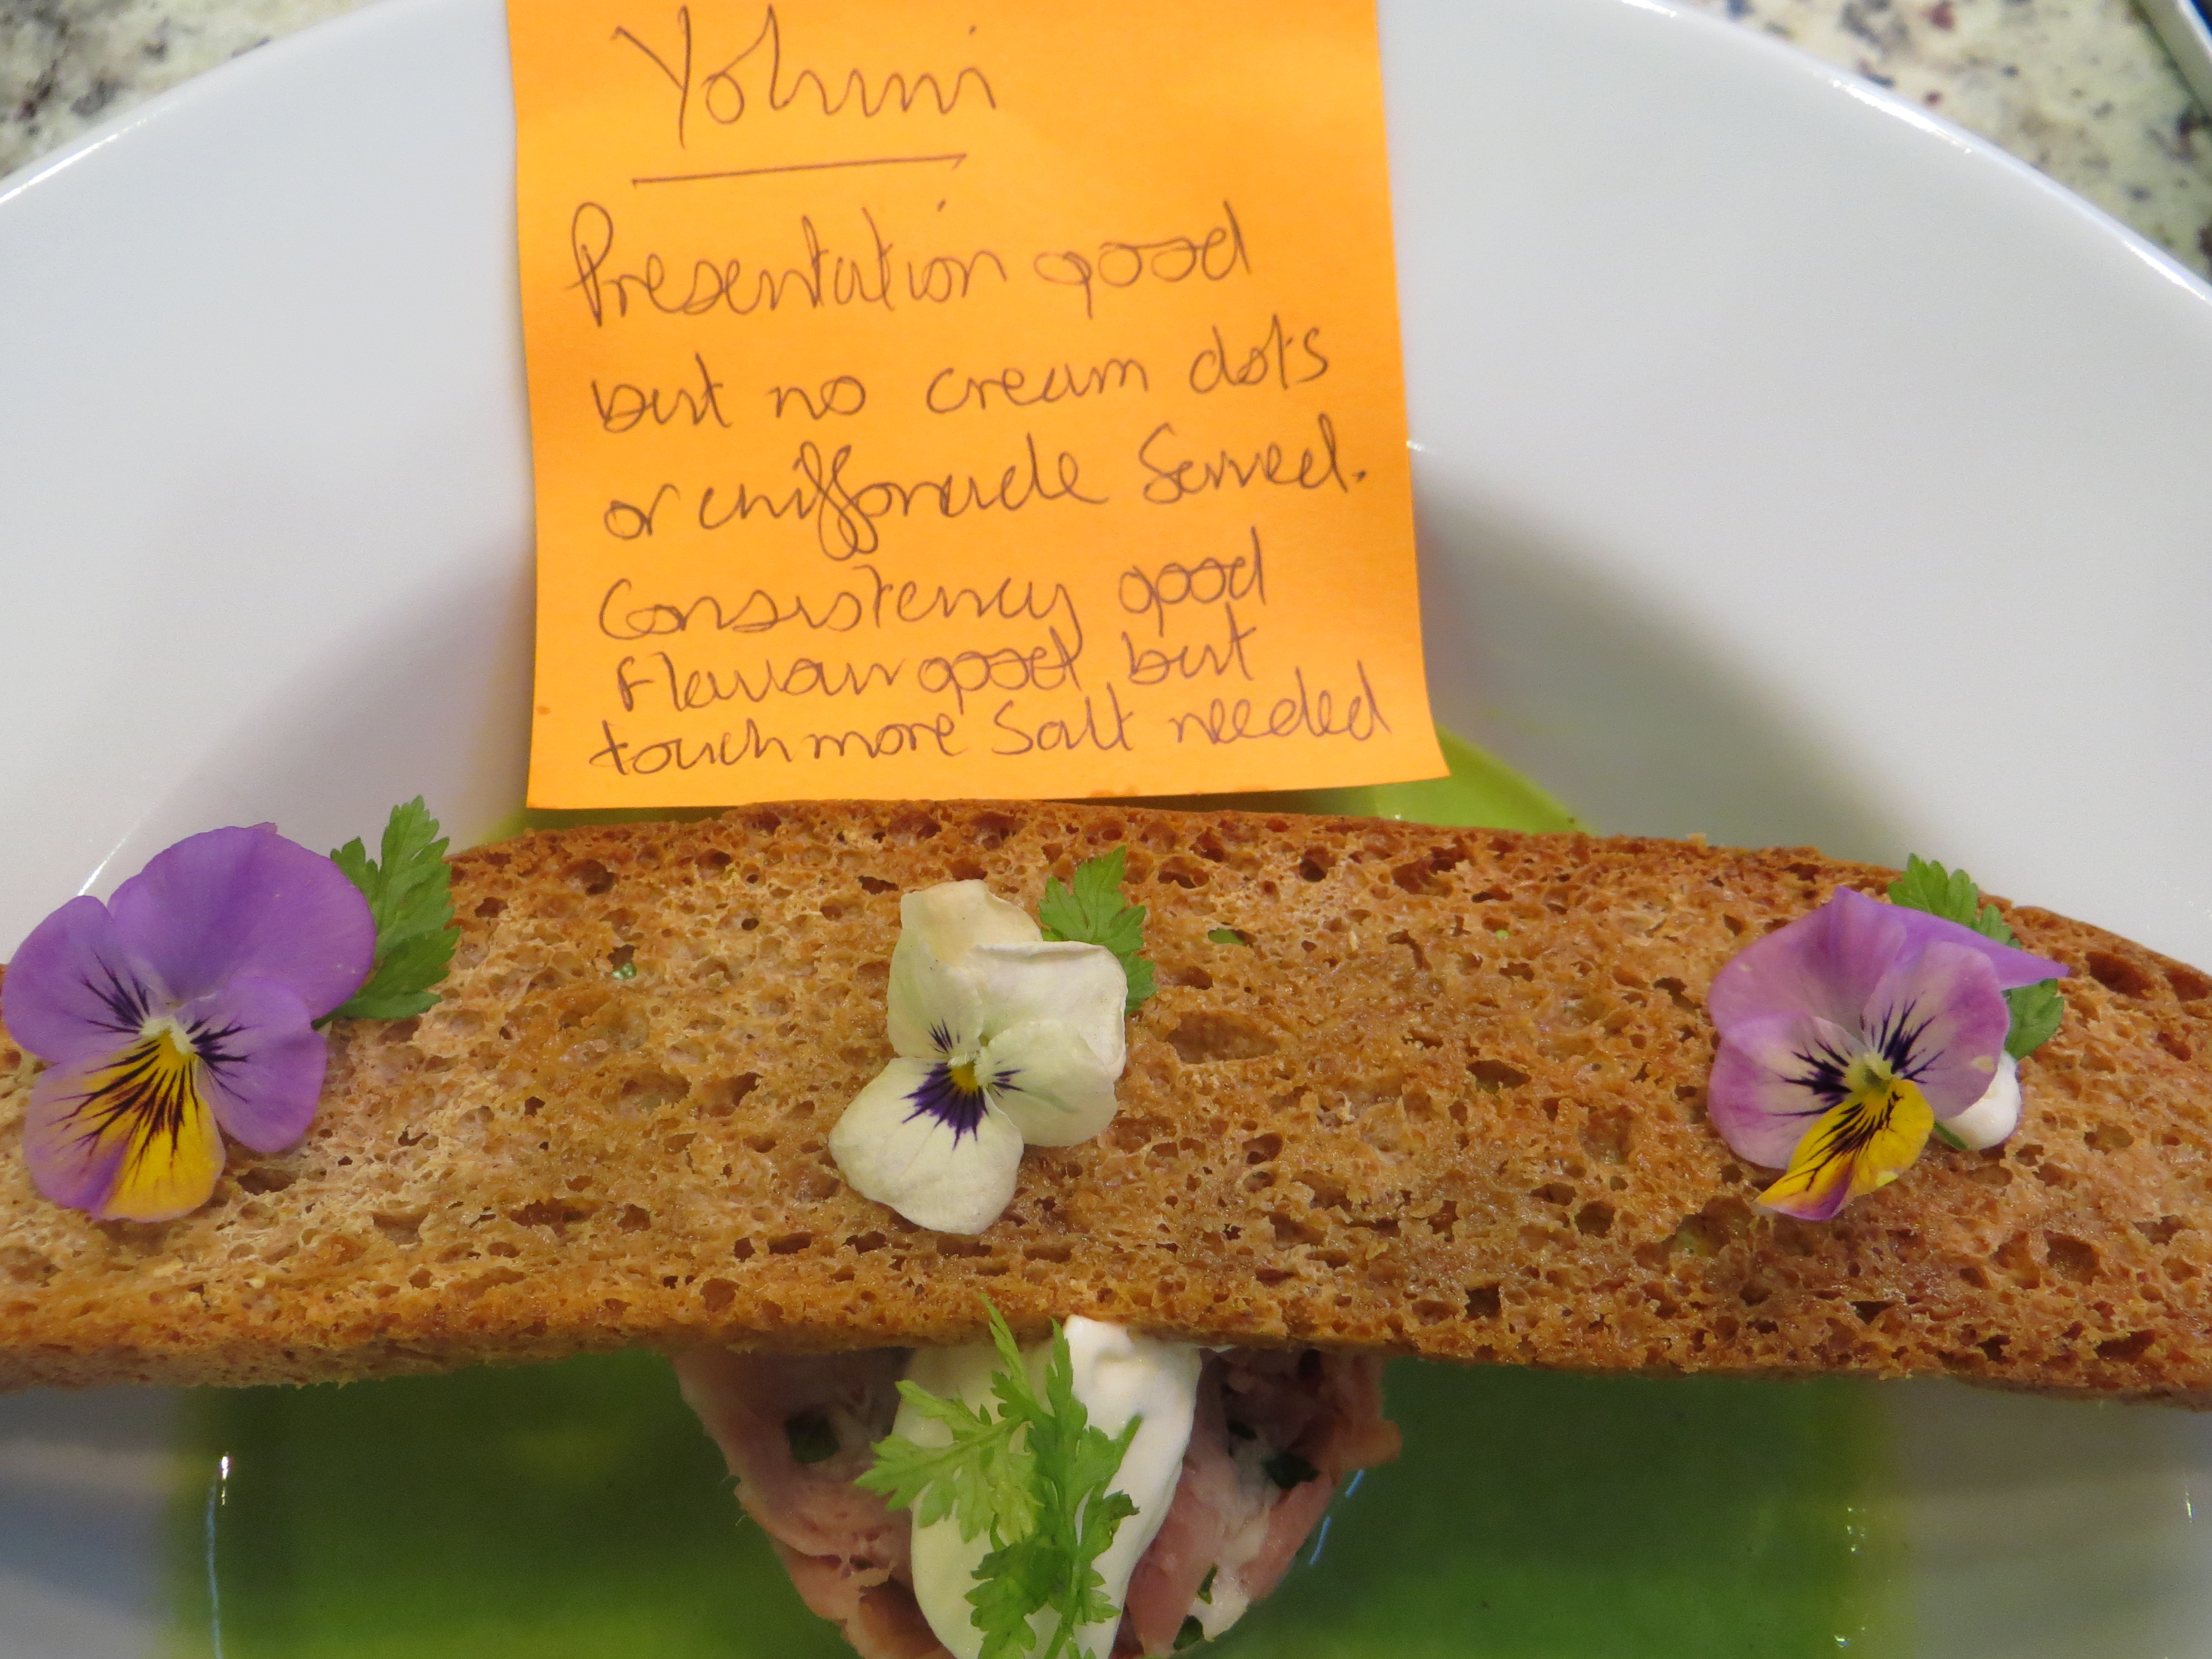 Yohini
Presentation good
but no cream dots
or chiffonade Served.
Consistency good
Flavour good but
touch more Salt needed